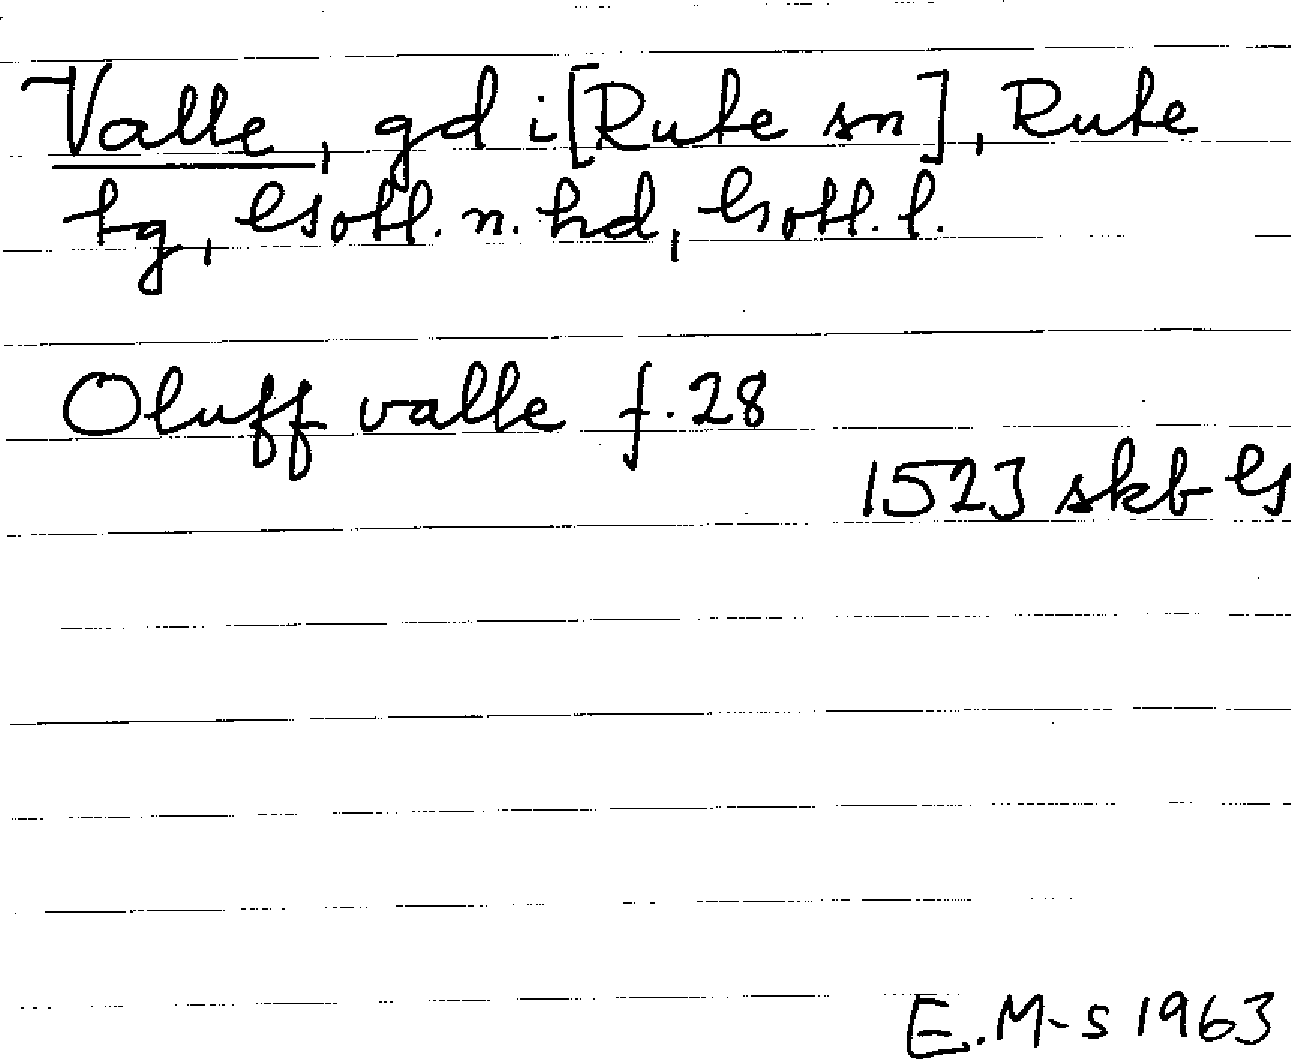 Valle, gd i [Rute sn], Rute
tg, Gotl. n. hd, Gotl. l.
Oluff valle f. 28
1523 skb G
E. M-s 1963